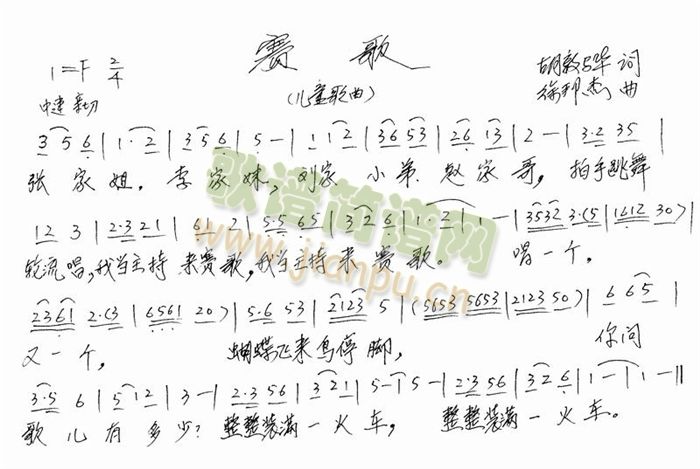 赛歌
(儿童歌曲)
1=F 2/4
中速 亲切
胡敦骅 词
徐邦杰 曲
3 5 6 | 1· 2 | 3 5 6 | 5 - | 1 1 2 | 36 53 | 26 13 | 2 - | 3·2 35 |
张 家 姐, 李 家 妹, 刘家 小 弟 赵 家 哥, 拍手跳舞
12 3 | 2·3 21 | 6· 2 | 5·5 65 | 3 2 6 | 1· 2 | 1 - | 3532 3·(5 | 1612 30) |
轮流唱,我当主持 来赛歌,我当主持 来 赛 歌。 唱 一 个,
2361 2·(3 | 6561 20) | 5·6 53 | 2123 5 | (5653 5653 | 2123 50) | 6 65 |
又 一 个, 蝴蝶飞来鸟停脚, 你问
3·5 6 | 5 12 | 3 - | 2·3 56 | 3 21 | 5 - | 5 - | 2·3 56 | 3 2 6 | 1 - | 1 - ‖
歌 儿 有 多 少? 整整装满 一 火 车, 整整装满 一 火 车。
歌谱简谱网
www.jianpu.cn